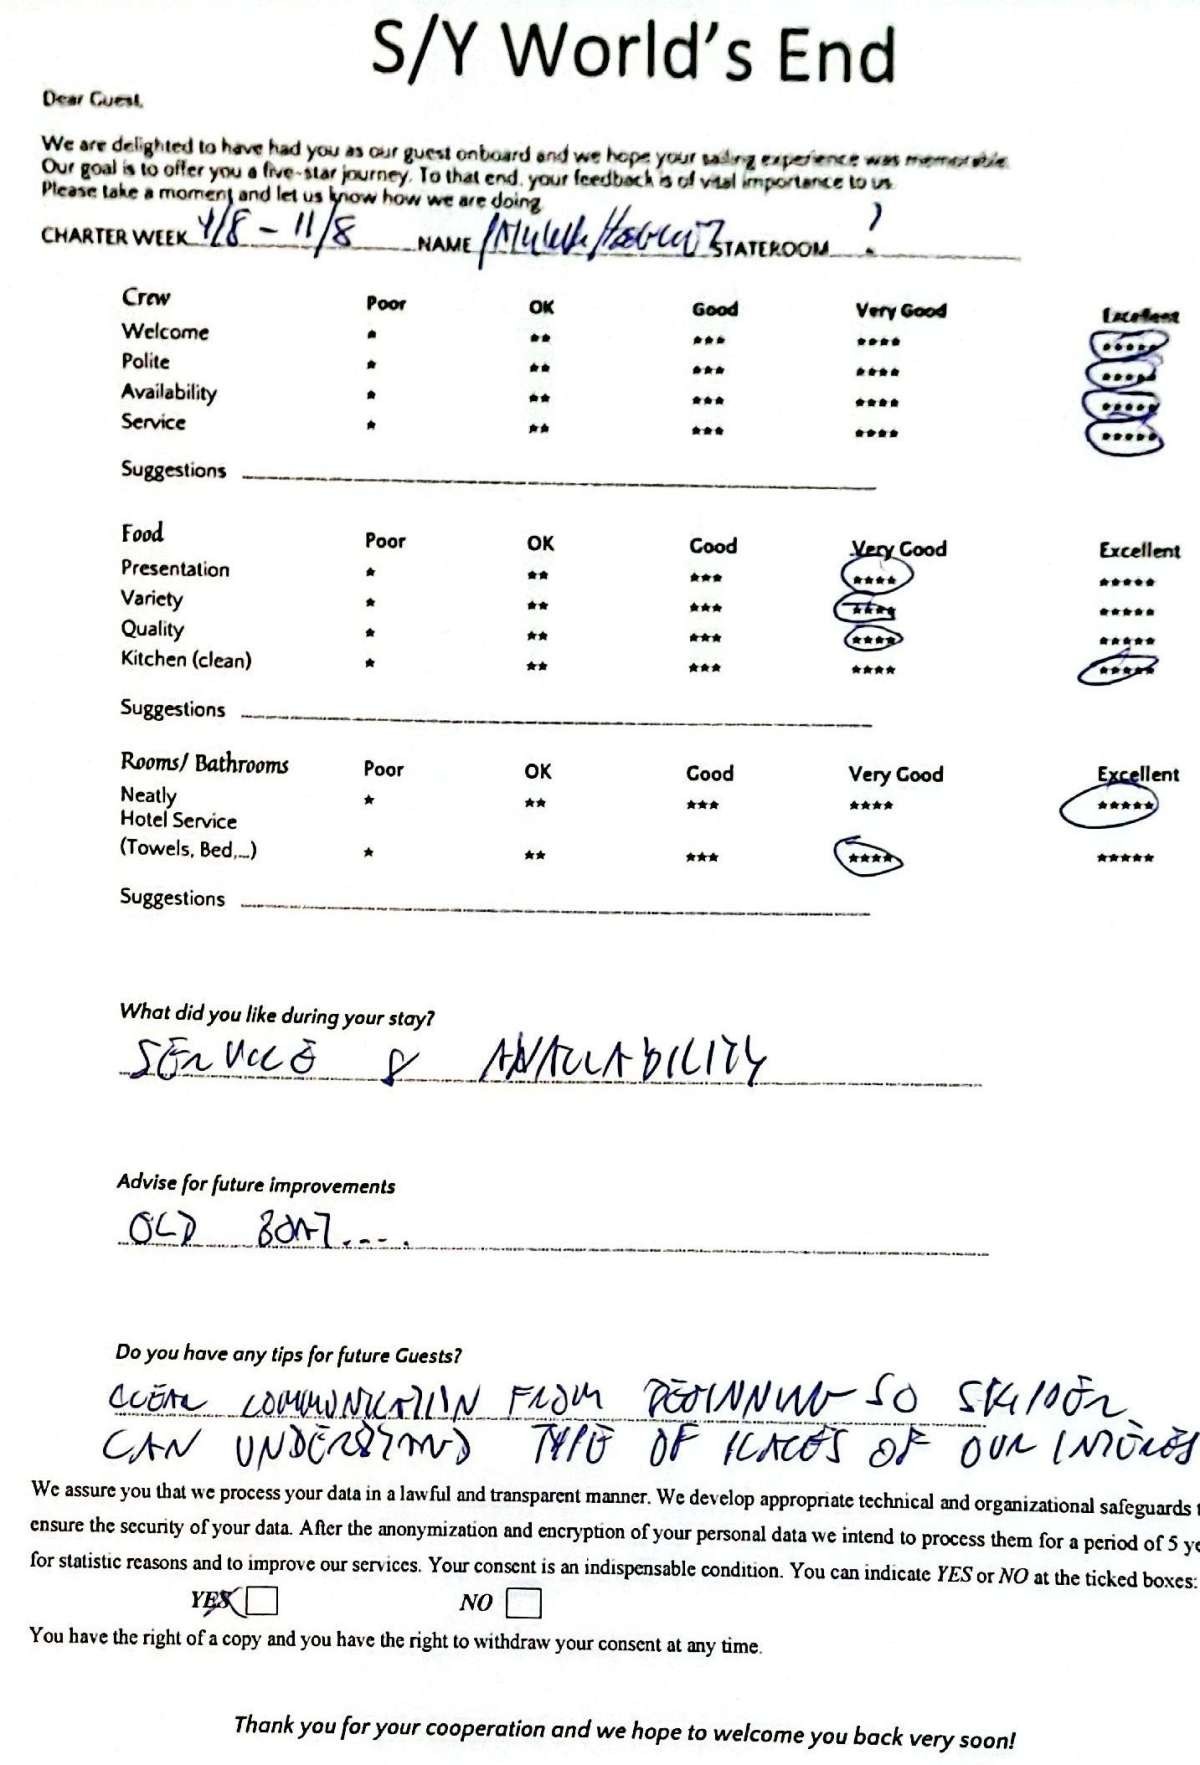 S/Y World's End
Dear Guest,
We are delighted to have had you as our guest onboard and we hope your sailing experience was memorable.
Our goal is to offer you a five-star journey. To that end, your feedback is of vital importance to us.
Please take a moment and let us know how we are doing
CHARTER WEEK 4/8 - 11/8 NAME STATEROOM ?
Crew Poor OK Good Very Good Excellent
Welcome * ** *** **** *****
Polite * ** *** **** *****
Availability * ** *** **** *****
Service * ** *** **** *****
Suggestions
Food Poor OK Good Very Good Excellent
Presentation * ** *** **** *****
Variety * ** *** **** *****
Quality * ** *** **** *****
Kitchen (clean) * ** *** **** *****
Suggestions
Rooms/ Bathrooms Poor OK Good Very Good Excellent
Neatly * ** *** **** *****
Hotel Service
(Towels, Bed,...) * ** *** **** *****
Suggestions
What did you like during your stay?
SERVICE & AVAILABILITY
Advise for future improvements
OLD BOAT....
Do you have any tips for future Guests?
CLEAR COMMUNICATION FROM BEGINNING SO SKIPPER
CAN UNDERSTAND TYPE OF PLACES OF OUR INTERES
We assure you that we process your data in a lawful and transparent manner. We develop appropriate technical and organizational safeguards t
ensure the security of your data. After the anonymization and encryption of your personal data we intend to process them for a period of 5 ye
for statistic reasons and to improve our services. Your consent is an indispensable condition. You can indicate YES or NO at the ticked boxes:
YES NO
You have the right of a copy and you have the right to withdraw your consent at any time.
Thank you for your cooperation and we hope to welcome you back very soon!